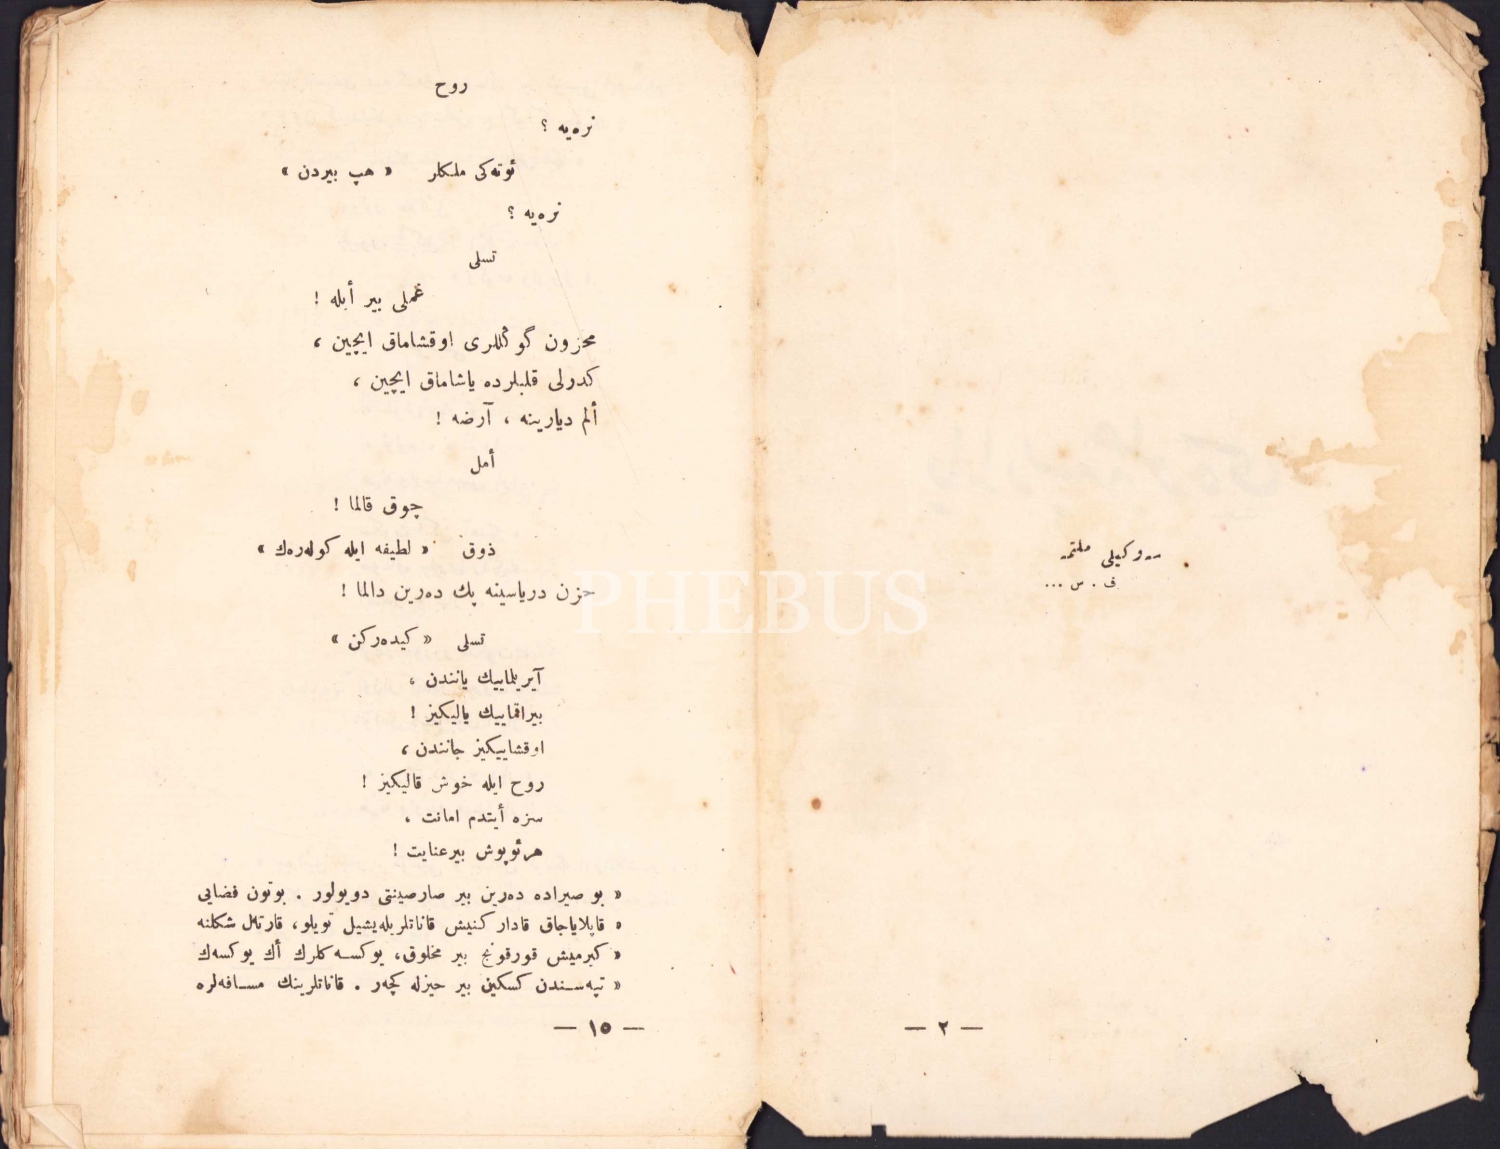 سوکیلی ملتمه
ف . س ...
— ٢ —
روح
نره‌یه ؟
ئوته‌کی ملکلر « هپ بیردن »
نره‌یه ؟
تسلی
غملی بیر أبله !
محزون گوڭللری اوقشاماق ایچین ،
کدرلی قلبلرده یاشاماق ایچین ،
ألم دیارینه ، آرضه !
أمل
چوق قالما !
ذوق « لطیفه ایله کوله‌رەك »
حزن دریاسینه پك ده‌رین دالما !
تسلی « کیده‌رکن »
آیریلماییك یانندن ،
بیراقماییك یالیکیز !
اوقشاییکیز جانندن ،
روح ایله خوش قالیکیز !
سزه أیتدم امانت ،
هر ئوپوش بیر عنایت !
« بو صیراده ده‌رین بیر صارصینتی دویولور . بوتون فضایی
« قاپلایاجاق قادار کنیش قاناتلریله یشیل تویلو، قارتال شکلنه
« کیرمیش قورقونج بیر مخلوق، یوکسه‌کلرك أك یوکسەك
« تپه‌سندن کسکین بیر حیزله کچەر . قاناتلرینك مسافه‌لره
— ١٥ —
PHEBUS